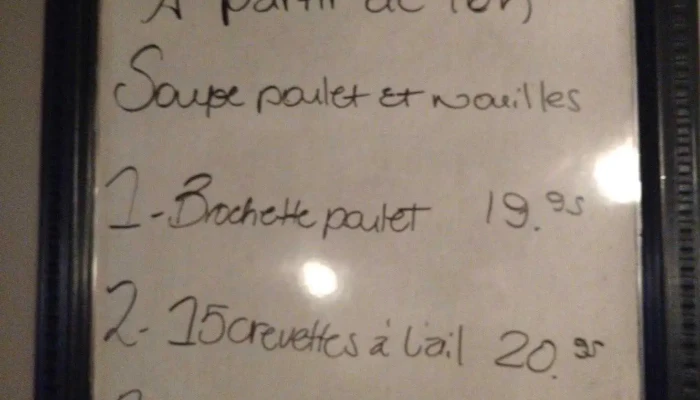 À partir de 16h
Soupe poulet et nouilles
1-Brochette poulet 19.95
2-15 crevettes à l'ail 20.95